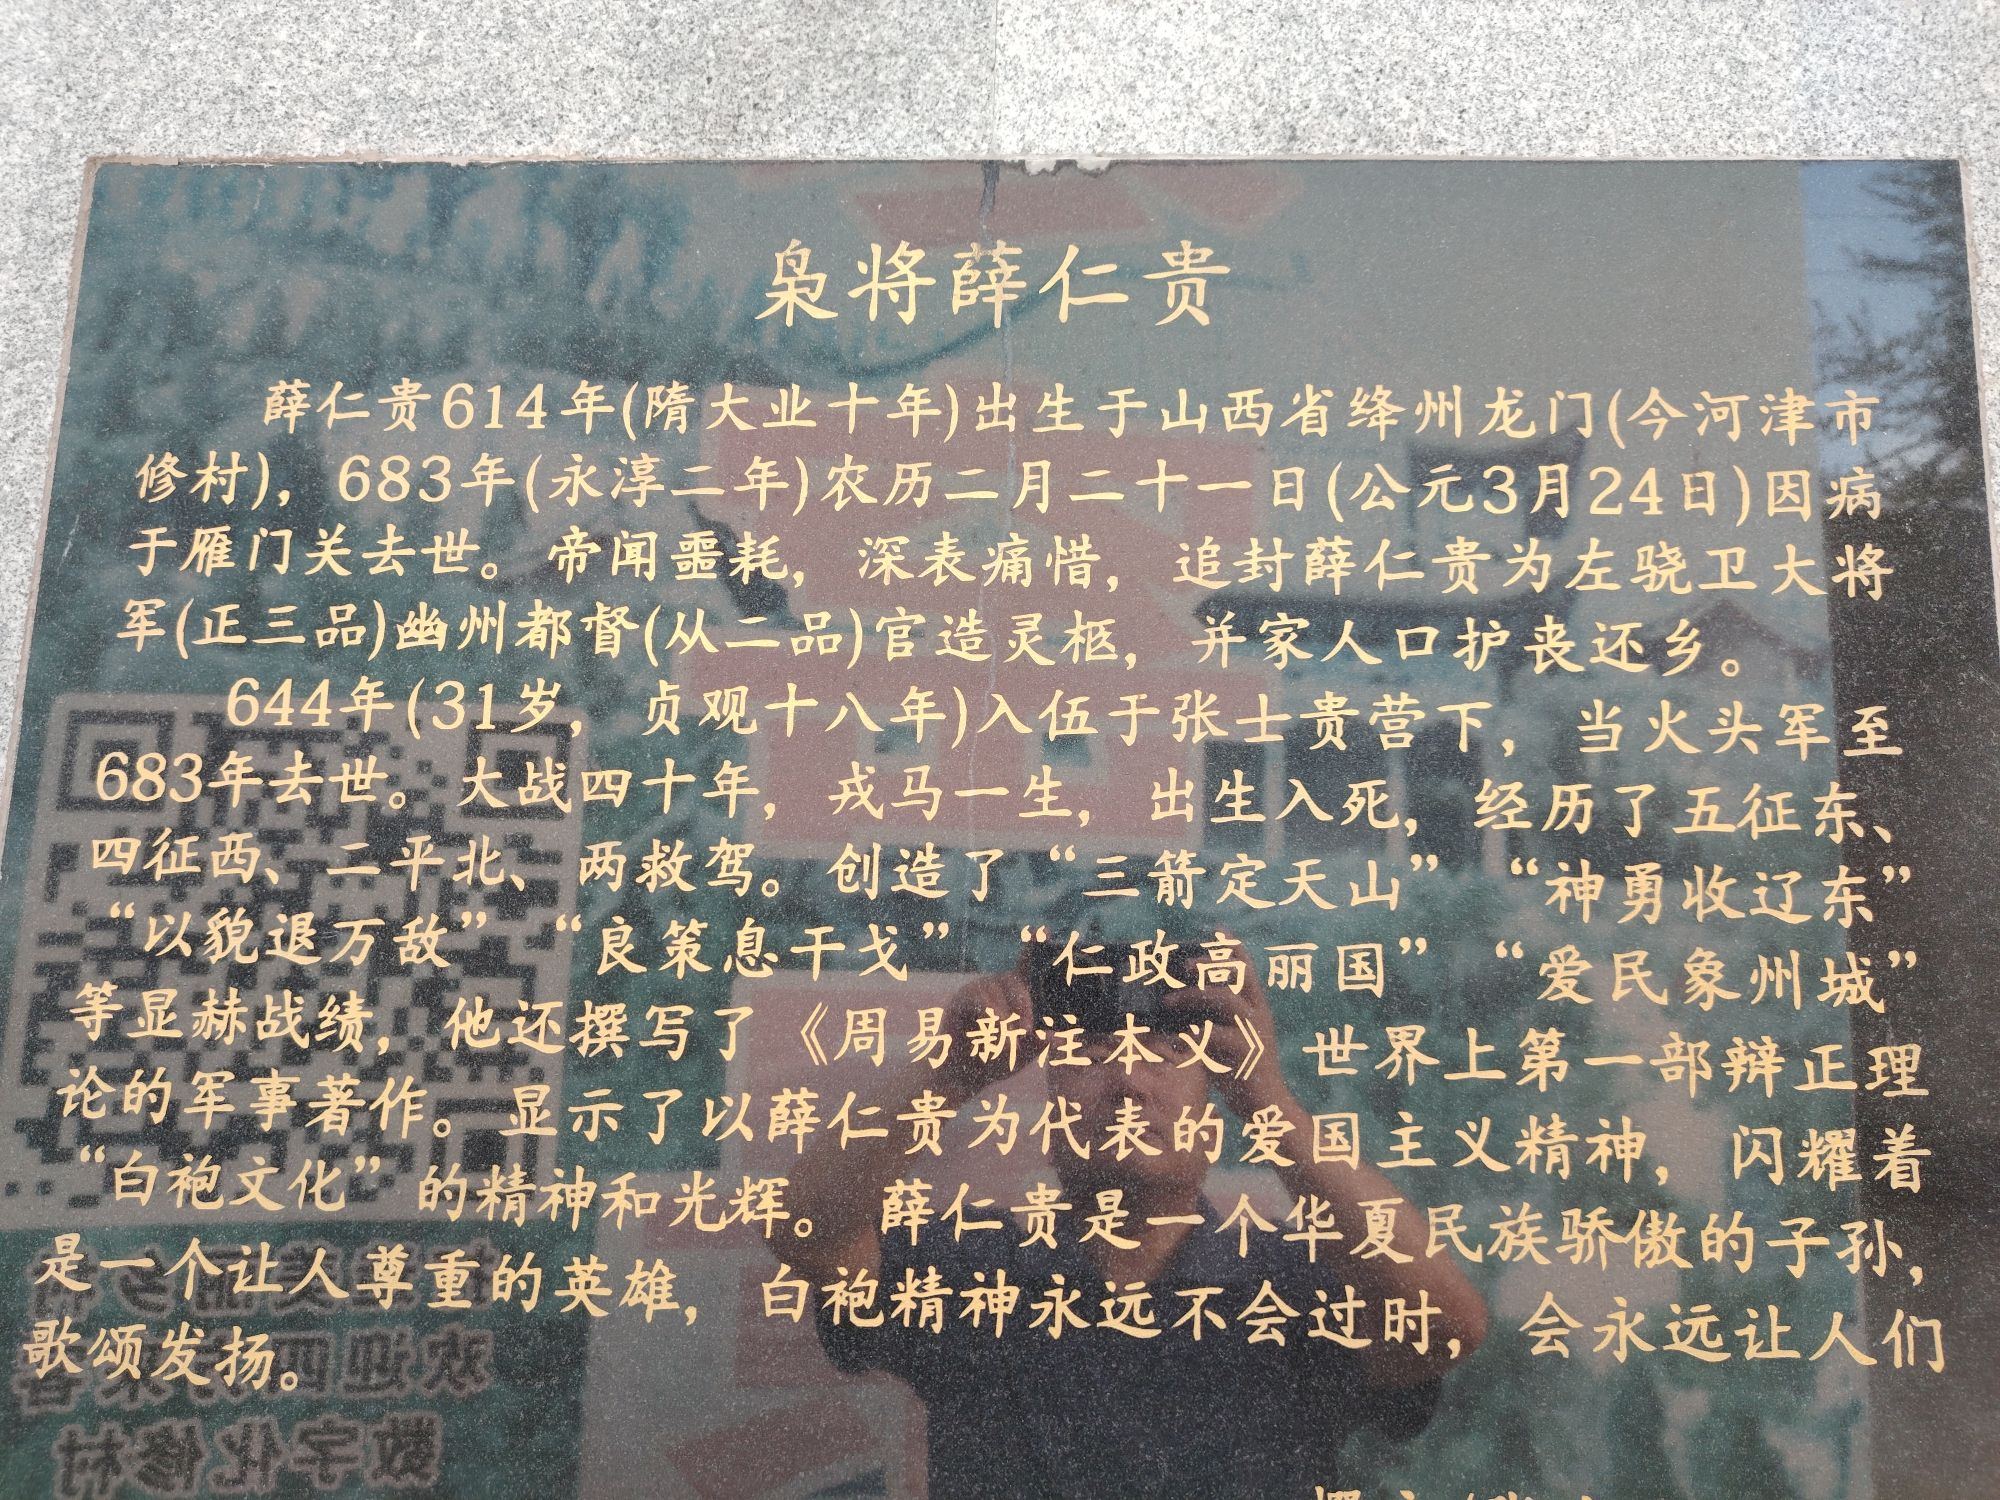 枭将薛仁贵
薛仁贵614年(隋大业十年)出生于山西省绛州龙门(今河津市
修村)，683年(永淳二年)农历二月二十一日(公元3月24日)因病
于雁门关去世。帝闻噩耗，深表痛惜，追封薛仁贵为左骁卫大将
军(正三品)幽州都督(从二品)官造灵柩，并家人口护丧还乡。
644年(31岁，贞观十八年)入伍于张士贵营下，当火头军至
683年去世。大战四十年，戎马一生，出生入死，经历了五征东、
四征西、二平北、两救驾。创造了“三箭定天山”“神勇收辽东”
“以貌退万敌”“良策息干戈”“仁政高丽国”“爱民象州城”
等显赫战绩，他还撰写了《周易新注本义》世界上第一部辩正理
论的军事著作。显示了以薛仁贵为代表的爱国主义精神，闪耀着
“白袍文化”的精神和光辉。薛仁贵是一个华夏民族骄傲的子孙，
是一个让人尊重的英雄，白袍精神永远不会过时，会永远让人们
歌颂发扬。
欢迎四方来客
数字化修村